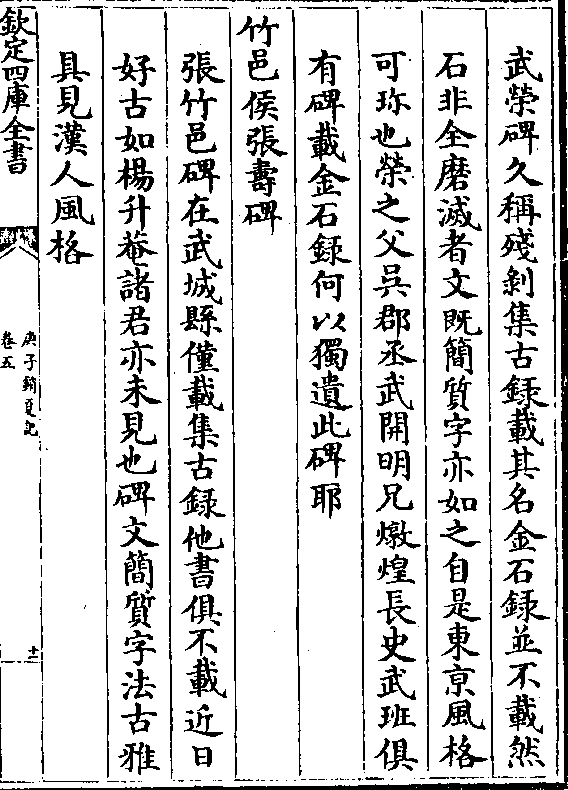 武榮碑久稱殘剝集古録載其名金石録並不載然
石非全磨滅者文既簡質字亦如之自是東京風格
可珎也榮之父吳郡丞武開明兄燉煌長史武班俱
有碑載金石録何以獨遺此碑耶
竹邑侯張壽碑
張竹邑碑在武城縣僅載集古録他書俱不載近日
好古如楊升菴諸君亦未見也碑文簡質字法古雅
具見漢人風格
欽定四庫全書
庚子銷夏記
卷五
十一